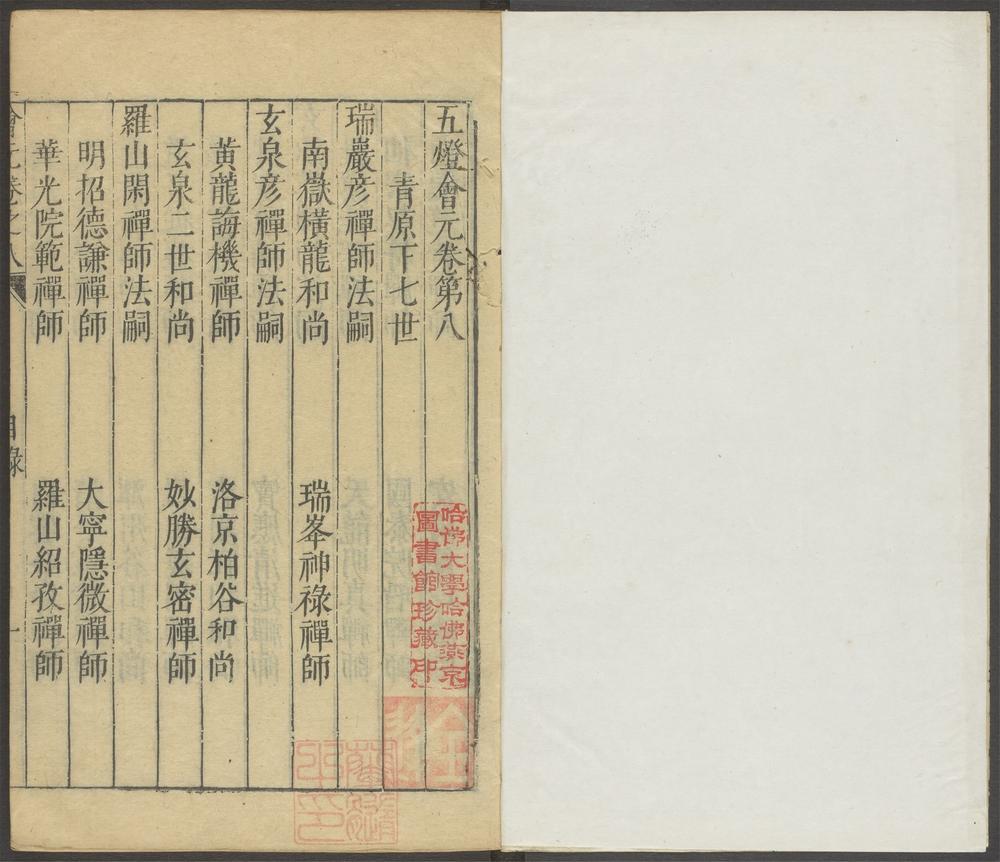 五燈會元卷第八
青原下七世
瑞巖彥禪師法嗣
南嶽橫龍和尚 瑞峯神祿禪師
玄泉彥禪師法嗣
黃龍誨機禪師 洛京柏谷和尚
玄泉二世和尚 妙勝玄密禪師
羅山閑禪師法嗣
明招德謙禪師 大寧隱微禪師
華光院範禪師 羅山紹孜禪師
會元卷之八 目錄 一
哈佛大學哈佛燕京
圖書館珍藏印